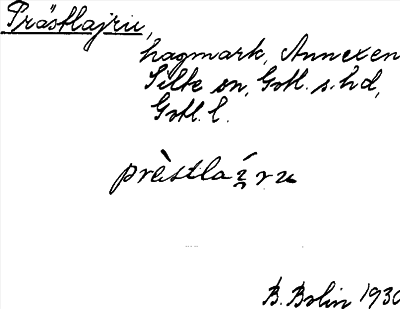 Prästlajru,
hagmark, Annexen
Silte sn, Gotl. s. hd,
Gotl. l.
prèstlaíru
B. Bolin 1930